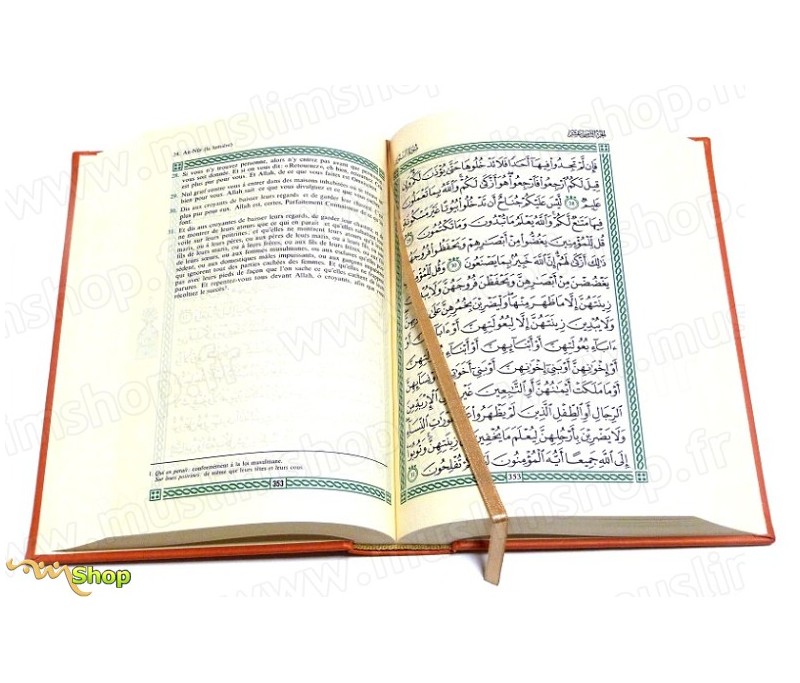 24. An-Nûr (la lumière)
28. Si vous n'y trouvez personne, alors n'y entrez pas avant que permission
vous soit donnée. Et si on vous dit: «Retournez», eh bien, retournez. Cela
est plus pur pour vous. Et Allah, de ce que vous faites est Omniscient.
29. Nul grief contre vous à entrer dans des maisons inhabitées où se trouve un
bien pour vous. Allah sait ce que vous divulguez et ce que vous
30. Dis aux croyants de baisser leurs regards et de garder leur chasteté. C'est
plus pur pour eux. Allah est, certes, Parfaitement Connaisseur de ce
31. Et dis aux croyantes de baisser leurs regards, de garder leur chasteté, et de
ne montrer de leurs atours que ce qui en paraît et qu'elles rabattent leur
voile sur leurs poitrines; et qu'elles ne montrent leurs atours qu'à leurs
maris, ou à leurs pères, ou aux pères de leurs maris, ou à leurs fils, ou aux
fils de leurs maris, ou à leurs frères, ou aux fils de leurs frères, ou aux fils
de leurs sœurs, ou aux femmes musulmanes, ou aux esclaves qu'elles
possèdent, ou aux domestiques mâles impuissants, ou aux garçons impubères
qui ignorent tout des parties cachées des femmes. Et qu'elles ne frappent
pas avec leurs pieds de façon que l'on sache ce qu'elles cachent de leurs
parures. Et repentez-vous tous devant Allah, ô croyants, afin que vous
récoltiez le succès
1. Qui en paraît: conformément à la loi musulmane.
Sur leurs poitrines: de même que leurs têtes et leurs cous.
353
فَإِن لَّمْ تَجِدُوا۟ فِيهَآ أَحَدًا فَلَا تَدْخُلُوهَا حَتَّىٰ يُؤْذَنَ لَكُمْ وَإِن
قِيلَ لَكُمُ ٱرْجِعُوا۟ فَٱرْجِعُوا۟ هُوَ أَزْكَىٰ لَكُمْ وَٱللَّهُ بِمَا تَعْمَلُونَ
عَلِيمٌ ٢٨ لَّيْسَ عَلَيْكُمْ جُنَاحٌ أَن تَدْخُلُوا۟ بُيُوتًا غَيْرَ مَسْكُونَةٍ
فِيهَا مَتَٰعٌ لَّكُمْ وَٱللَّهُ يَعْلَمُ مَا تُبْدُونَ وَمَا تَكْتُمُونَ ٢٩
قُل لِّلْمُؤْمِنِينَ يَغُضُّوا۟ مِنْ أَبْصَٰرِهِمْ وَيَحْفَظُوا۟ فُرُوجَهُمْ
ذَٰلِكَ أَزْكَىٰ لَهُمْ إِنَّ ٱللَّهَ خَبِيرٌۢ بِمَا يَصْنَعُونَ ٣٠ وَقُل لِّلْمُؤْمِنَٰتِ
يَغْضُضْنَ مِنْ أَبْصَٰرِهِنَّ وَيَحْفَظْنَ فُرُوجَهُنَّ وَلَا يُبْدِينَ
زِينَتَهُنَّ إِلَّا مَا ظَهَرَ مِنْهَا وَلْيَضْرِبْنَ بِخُمُرِهِنَّ عَلَىٰ جُيُوبِهِنَّ
وَلَا يُبْدِينَ زِينَتَهُنَّ إِلَّا لِبُعُولَتِهِنَّ أَوْ ءَابَآئِهِنَّ أَوْ
ءَابَآءِ بُعُولَتِهِنَّ أَوْ أَبْنَآئِهِنَّ أَوْ أَبْنَآءِ بُعُولَتِهِنَّ
أَوْ إِخْوَٰنِهِنَّ أَوْ بَنِىٓ إِخْوَٰنِهِنَّ أَوْ بَنِىٓ أَخَوَٰتِهِنَّ أَوْ نِسَآئِهِنَّ
أَوْ مَا مَلَكَتْ أَيْمَٰنُهُنَّ أَوِ ٱلتَّٰبِعِينَ غَيْرِ أُو۟لِى ٱلْإِرْبَةِ مِنَ
ٱلرِّجَالِ أَوِ ٱلطِّفْلِ ٱلَّذِينَ لَمْ يَظْهَرُوا۟ عَلَىٰ عَوْرَٰتِ ٱلنِّسَآءِ
وَلَا يَضْرِبْنَ بِأَرْجُلِهِنَّ لِيُعْلَمَ مَا يُخْفِينَ مِن زِينَتِهِنَّ وَتُوبُوٓا۟
إِلَى ٱللَّهِ جَمِيعًا أَيُّهَ ٱلْمُؤْمِنُونَ لَعَلَّكُمْ تُفْلِحُونَ ٣١
353
Shop
www.muslimshop.fr